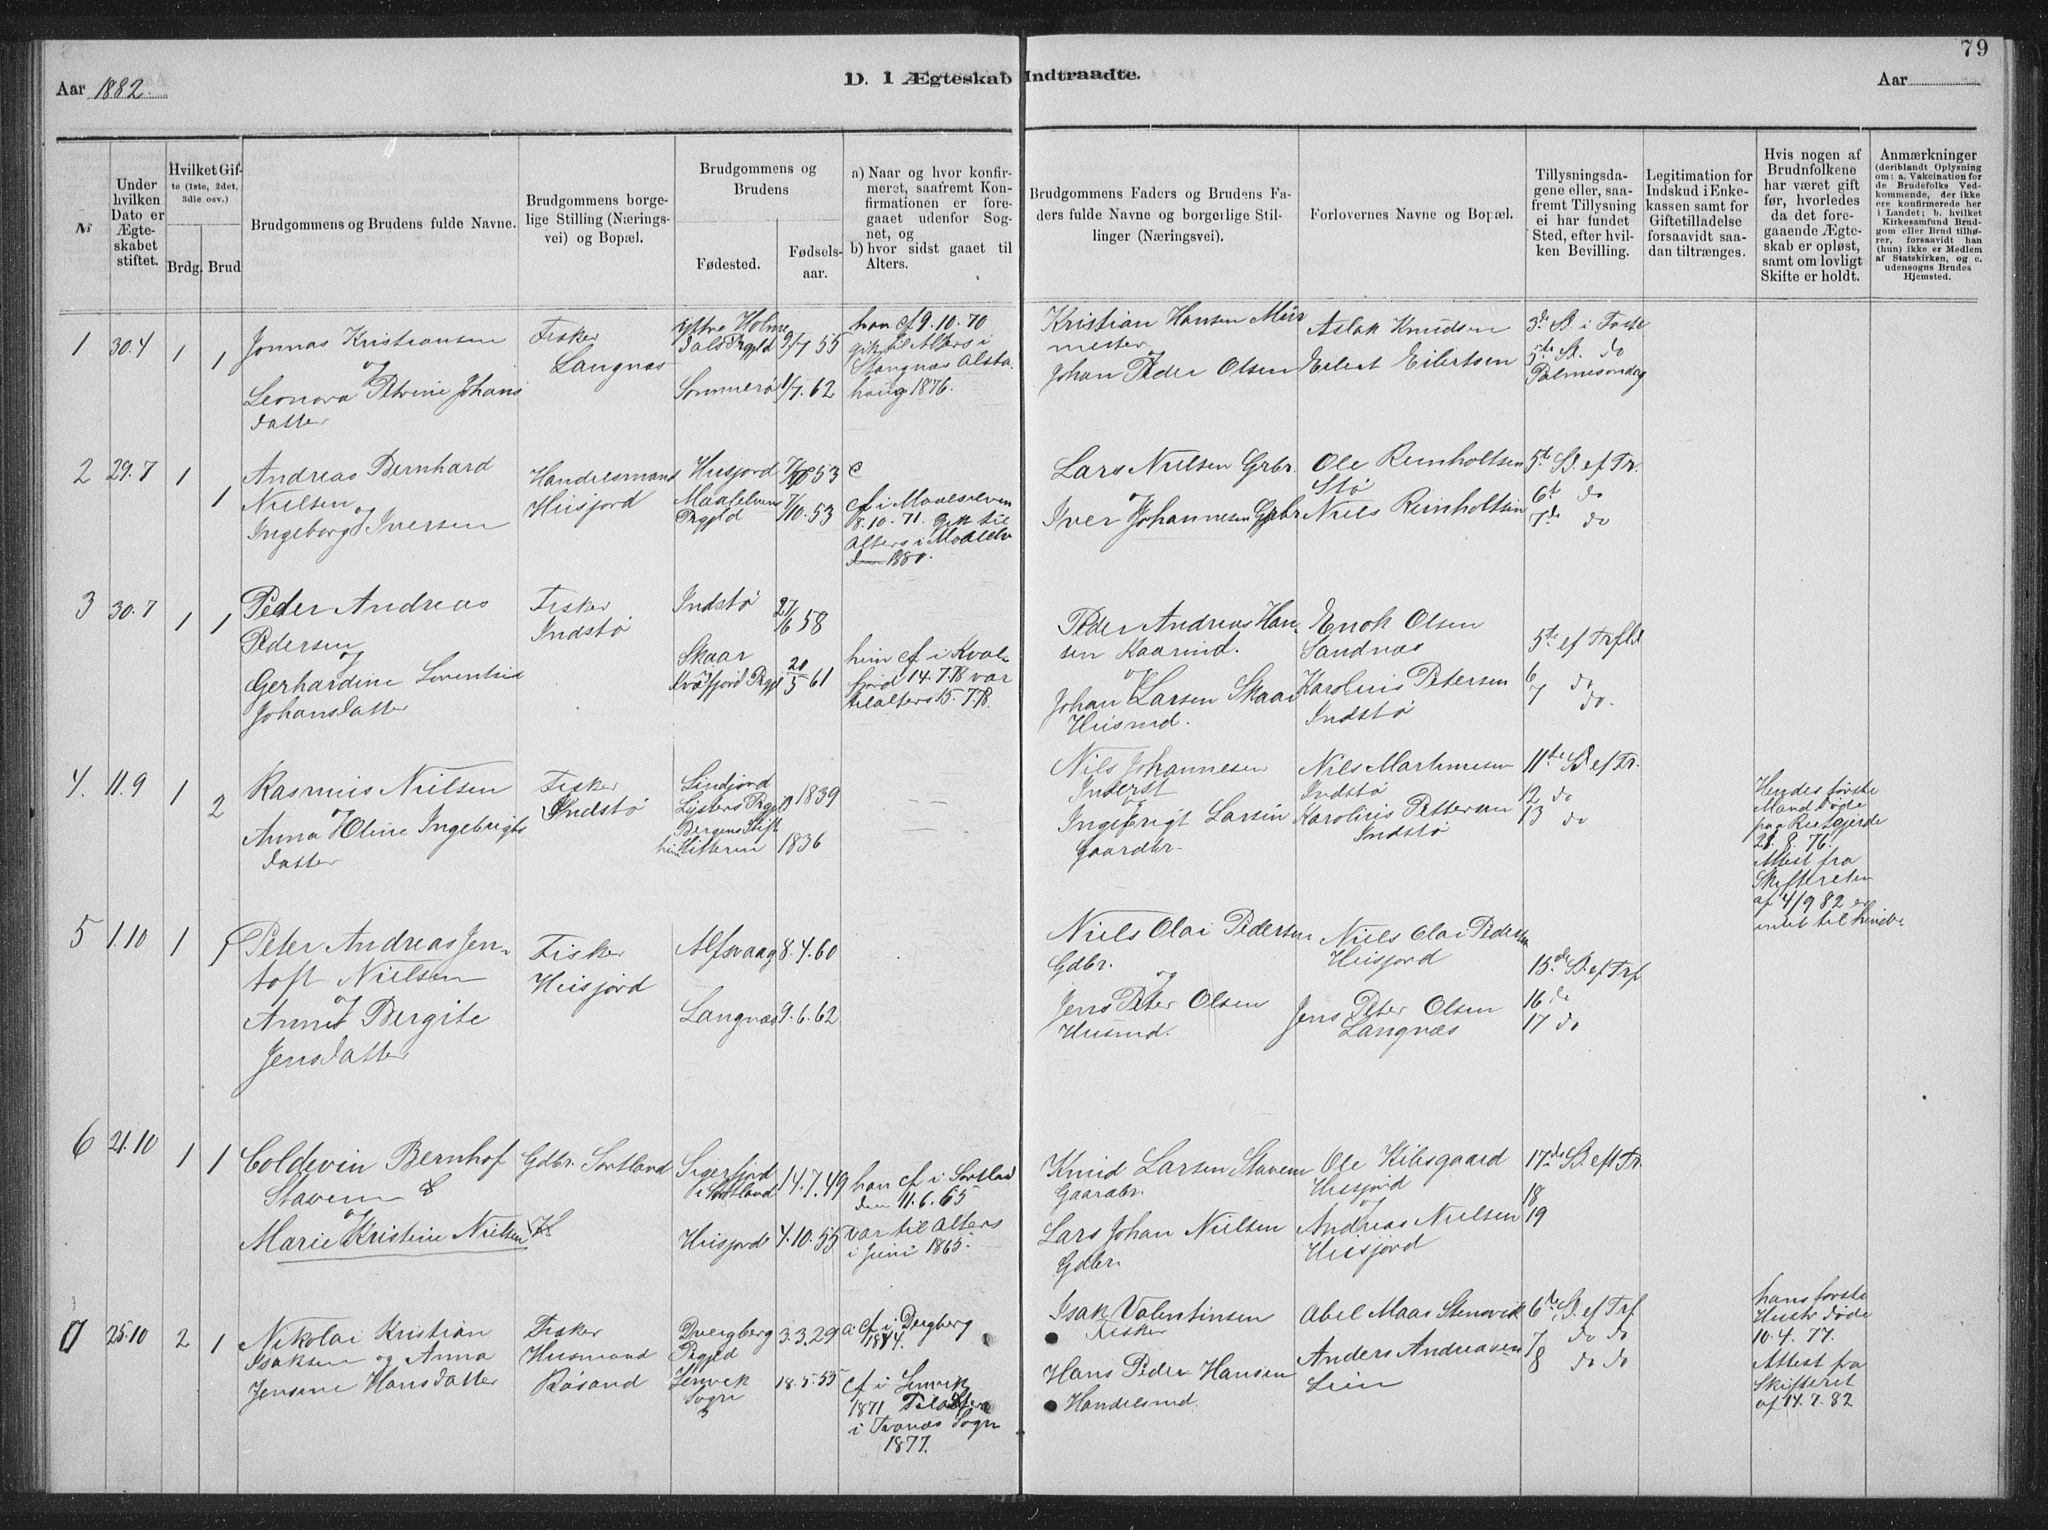 79
Aar 1882.
D. I Ægteskab Indtraadte.
Aar
№
Under hvilken Dato er Ægteskabet stiftet.
Hvilket Gifte (1ste, 2det, 3die osv.)
Brdg.
Brud
Brudgommens og Brudens fulde Navne.
Brudgommens borgelige Stilling (Næringsvei) og Bopæl.
Brudgommens og Brudens
Fødested.
Fødselsaar.
a) Naar og hvor konfirmeret, saafremt Konfirmationen er foregaaet udenfor Sognet, og
b) hvor sidst gaaet til Alters.
Brudgommens Faders og Brudens Faders fulde Navne og borgerlige Stillinger (Næringsvei).
Forlovernes Navne og Bopæl.
Tillysningsdagene eller, saafremt Tillysning ei har fundet Sted, efter hvilken Bevilling.
Legitimation for Indskud i Enkekassen samt for Giftetilladelse forsaavidt saadan tiltrænges.
Hvis nogen af Brudnfolkene har været gift før, hvorledes da det foregaaende Ægteskab er opløst, samt om lovligt Skifte er holdt.
Anmærkninger
(deriblandt Oplysning om: a. Vakcination for de Brudefolks Vedkommende, der ikke ere konfirmerede her i Landet; b. hvilket Kirkesamfund Brudgom eller Brud tilhører, forsaavidt han (hun) ikke er Medlem af Statskirken, og c. udensogns Brudes Hjemsted.
1 30.4 1 1
Jonnas Kristiansen
og
Leonora Petrine Johans
datter
Fisker
Langnæs
Yttre Holme
dals Prgjld 9/7 55
Sommerø 1/7. 62
han cf 9.10.70
gik til Alters i
Stangnæs Alsta
houg 1876.
Kristian Hansen Mur
mester
og
Johan Peder Olsen
Aslak Knudsen
Eilert Eilertsen
3de S. i Faste
5te S. do
Palmesøndag
2 29.7 1 1
Andreas Bernhard
Nielsen
og
Ingeborg Iversen
Handelsmand
Husjord
Husjord 53
Maalselven
Prgjld 7/10.53
c
cf i Maalselven
8.10.71. gik til
Alters i Maalselv
1880.
Lars Nielsen Grbr.
og
Iver Johannesen Gbr
Ole Reinholtsen
Stø
Niels Reinholtsen
5te S. ef Tr.
6t do
7de do
3 30.7 1 1
Peder Andreas
Pedersen
og
Gerhardine Lorentine
Johansdatter
Fisker
Indstø
Indstø 27/6 58
Skaar
Kvæfjord Prgjd 20/5 61
hun cf i Kvæ
fjord 14.7.78 var
til alters 15.7.78.
Peder Andreas Han
sen Kaarmd.
og
Johan Larsen Skaar
Husmd.
Enok Olsen
Sandnæs
Karolius Petersen
Indstø
5te ef Trfld
6 do
7 do.
4. 11.9 1 2
Rasmus Nielsen
og
Anna Oline Ingebrigts
datter
Fisker
Indstø
Lindjord
Lysters Prgjld 1839
Bergens Stift
hun Hitteren 1836
Nils Johannesen
Inderst
og
Ingebrigt Larsen
Gaardbr.
Nils Martinusen
Indstø
Karolius Pettersen
Indstø
11te S. ef Tr.
12 do
13 do
Hendes første
Mand døde
paa Reitgjerde
28.8.76.
Attest fra
Skifteretten
af 4/9 82 er
intet til hinder
5 1.10 1 1
Peter Andreas Jen-
toft Nielsen
og
Anne Bergite
Jensdatter
Fisker
Husjord
Alfsvaag 8.4.60
Langnæs 9.6.62
Niels Olai Pedersen
Gdbr.
og
Jens Peter Olsen
Husmd.
Niels Olai Pedersen
Husjord
Jens Peter Olsen
Langnæs
15de S. ef Trf
16 do
17 do
6 21.10 1 1
Coldevin Bernhof
Stavem
og
Marie Kristine Nielsen
Gdbr. Sortland
Sigerfjord
i Sortland 14.7.49
Husjord 4.10.55
han cf i Sortland
den 11.6.65
var til Alters
i Juni 1865.
Knud Larsen Stavem
Gaardbr.
Lars Johan Nielsen
Gdbr.
Ole Kibsgaard
Husjord
og
Andreas Nielsen
Husjord
17de S. eft Tr.
18
19
7 25.10 2 1
Nikolai Kristian
Isaksen og Anna
Jensine Hansdatter
Fisker
Husmand
Røsand
Dvergberg
Prgjld 3.3.29
Lenvik
Sogn 18.5.55
a. cf i Dvergberg
1844.
cf i Lenvik
1871 Til Alters
i Tranøs Sogn
1877.
Isak Valentinsen
Fisker
Hans Peder Hansen
Handelsmd.
Abel Maas Stensvik
Anders Andreasen
Lein
6te S. ef Trf
7 do do
8 do do
hans første
Hustr døde
10.4.77.
Attest fra
Skifteret
af 14.7.82